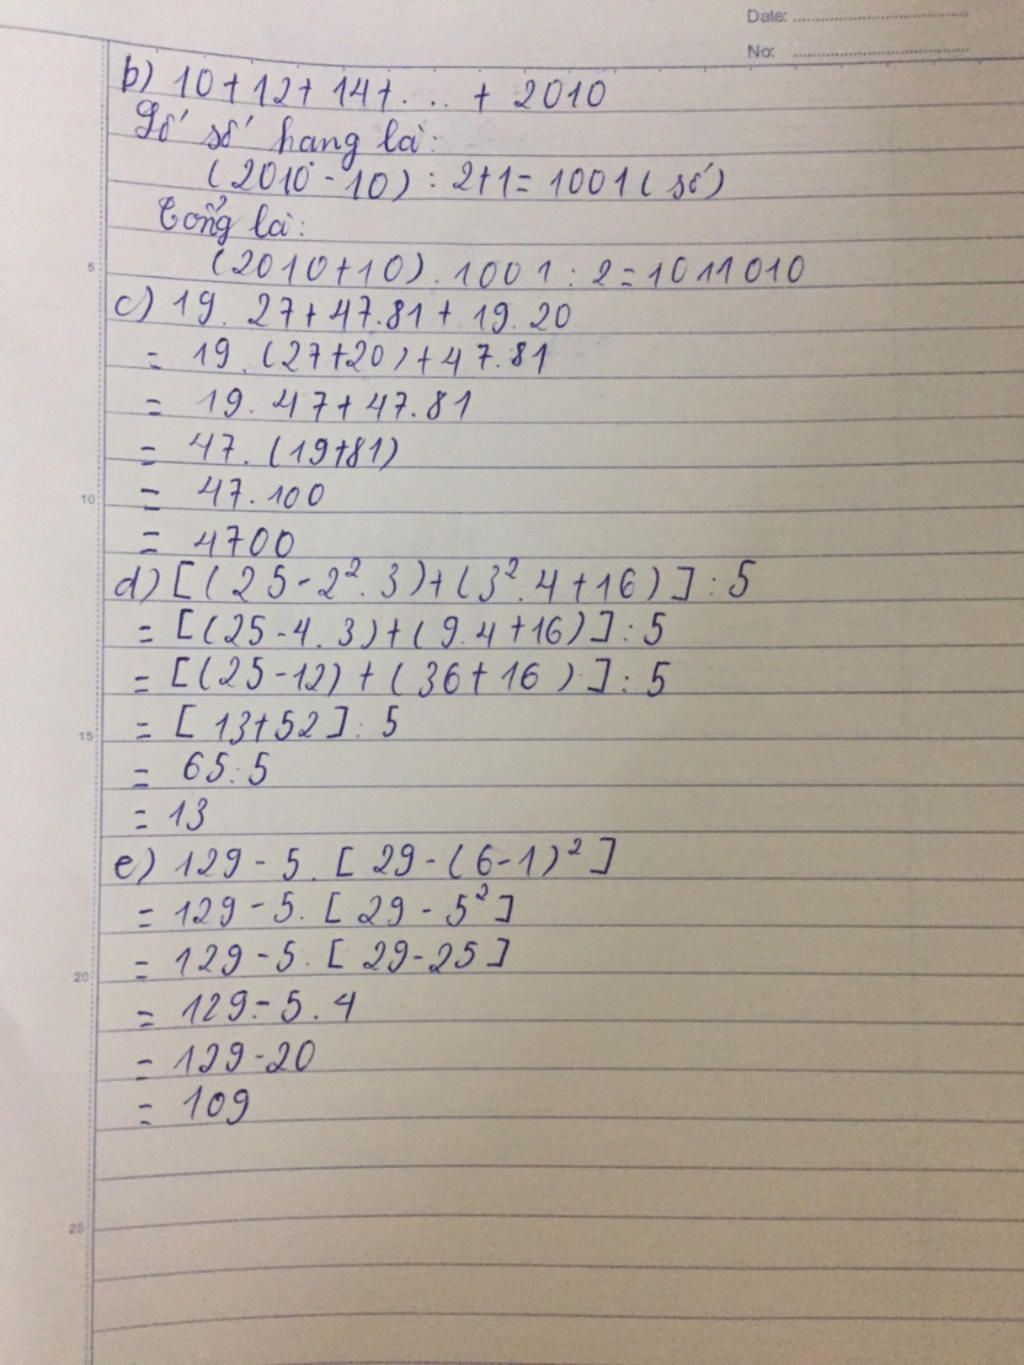 Date:
No:
b) 10 + 12 + 14 + . . . + 2010
Số số hang là:
(2010 - 10) : 2 + 1 = 1001 ( số )
Tổng là:
(2010 + 10) . 1001 : 2 = 1011010
5
c) 19 . 27 + 47.81 + 19. 20
= 19. (27+20) + 47.81
= 19. 47 + 47.81
= 47. (19+81)
10
= 47.100
= 4700
d) [ ( 25 - 2². 3) + ( 3². 4 + 16 ) ] : 5
= [(25 - 4. 3) + ( 9. 4 + 16)] : 5
= [(25 - 12) + ( 36 + 16 ) ] : 5
= [ 13 + 52 ] : 5
15
= 65 : 5
= 13
e) 129 - 5. [ 29 - ( 6 - 1)² ]
= 129 - 5. [ 29 - 5² ]
= 129 - 5. [ 29 - 25 ]
20
= 129 - 5 . 4
= 129 - 20
= 109
25